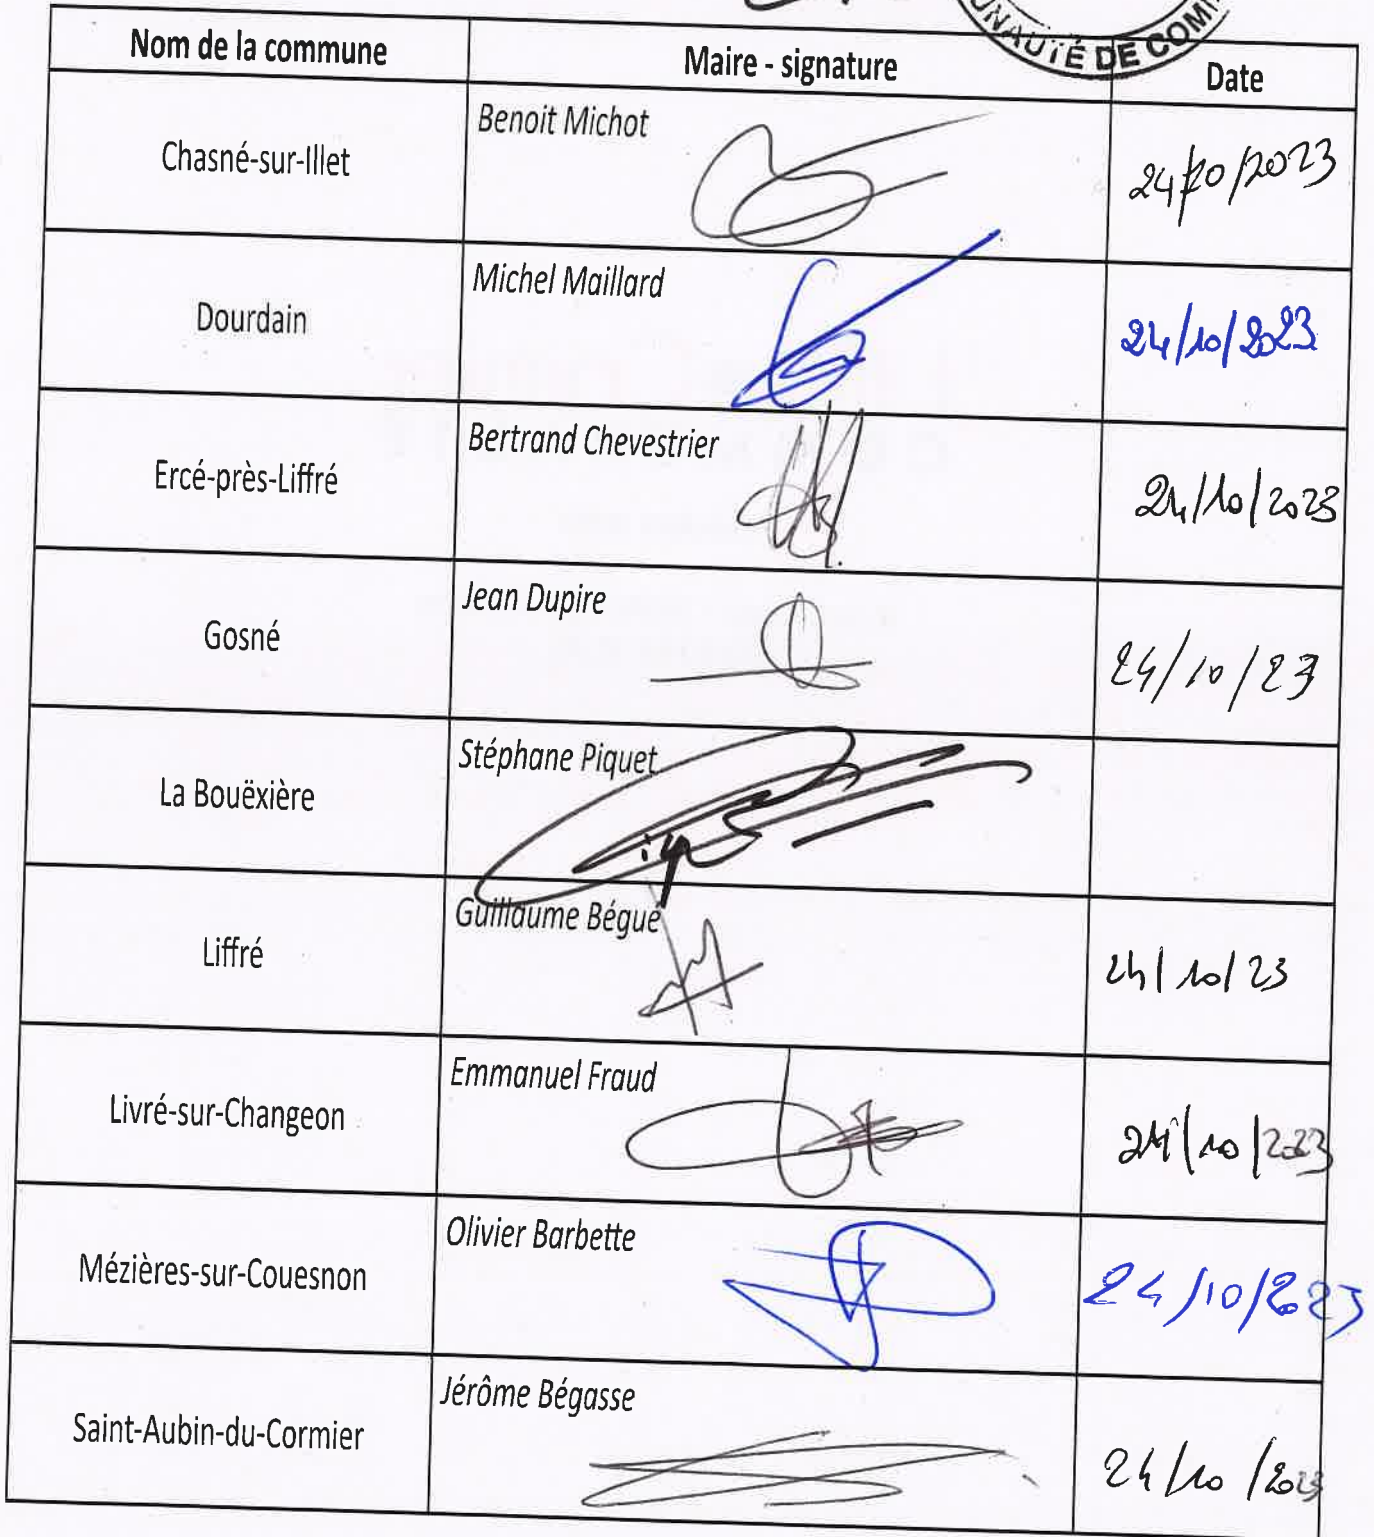 UNAUTÉ DE COM
Nom de la commune Maire - signature Date
Chasné-sur-Illet Benoit Michot 24/10/2023
Dourdain Michel Maillard 24/10/2023
Ercé-près-Liffré Bertrand Chevestrier 24/10/2023
Gosné Jean Dupire 24/10/23
La Bouëxière Stéphane Piquet
Liffré Guillaume Bégué 24/10/23
Livré-sur-Changeon Emmanuel Fraud 24/10/2023
Mézières-sur-Couesnon Olivier Barbette 24/10/2023
Saint-Aubin-du-Cormier Jérôme Bégasse 24/10/2023